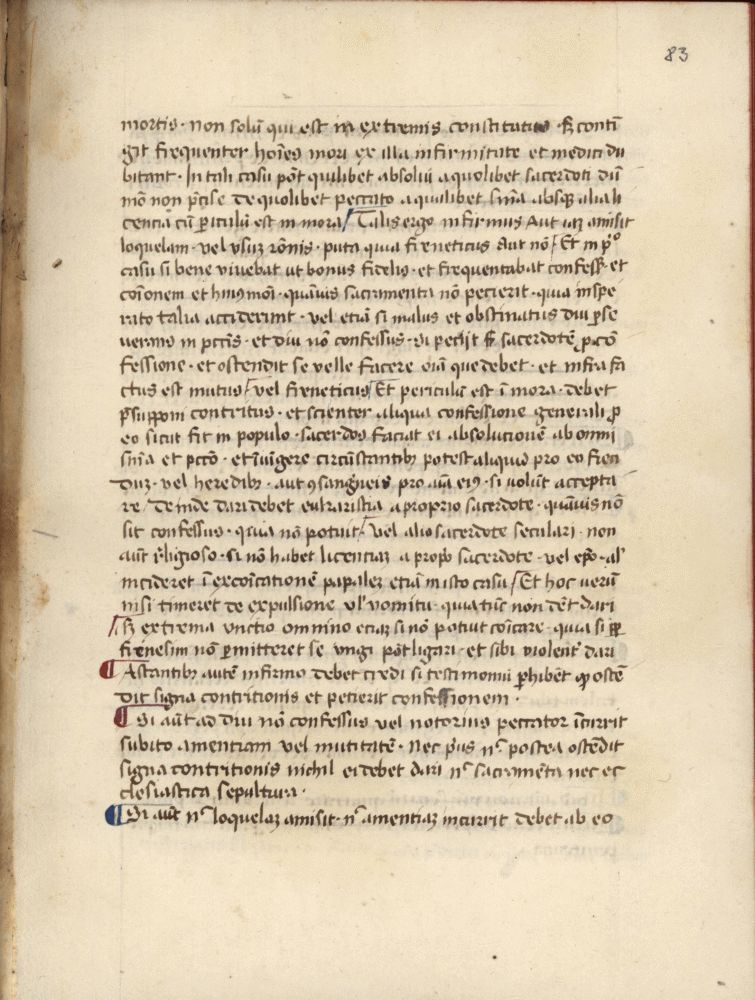 83
mortis · non solū qui est in extremis constitutus · Sȝ conti
git frequenter hoīes mori ex illa infirmitate et medici du
bitant · In tali casu pōt quilibet absolui a quolibet sacerdoti dū
mō non p̄cise de quolibet peccato a qualibet snīa absqȝ alia li
cencia cū ꝑiculū est in mora / Talis ergo infirmus Aut iaȝ amisit
loquelam · vel vsuȝ rōnis · puta quia freneticus Aut nō / Et in pº
casu si bene viuebat ut bonus fidelis · et frequentabat confess · et
coīonem et huiusmōi · quāuis sacramenta nō pecierit · quia inspe
rato talia acciderint · vel etiā si malus et obstinatus diu ꝑse
uerauit in pctīs · et diu nō confessus · si peciit sacerdotē ꝓ cō
fessione · et ostendit se velle facere oīa que debet · et infra fa
ctus est mutus / vel freneticus / Et periculū est ī mora · debet
p̄supponi contritus · et scienter aliqua confessione generali ꝓ
eo sicut fit in populo · sacerdos faciat ei absolutionē ab omni
snīa et pctō · et iūgere circūstantibȝ potest aliquid pro eo fieri
duȝ · vel heredibȝ · aut ꝯsanguīeis pro aīa eiꝰ · si volūt accepta
re / deinde dari debet eukaristia a proprio sacerdote · quāuis nō
sit confessus · quia nō potuit / vel alio sacerdote seculari · non
aūt religioso · si nō habet licentiaȝ a propo sacerdote · vel epō · al'
incideret ī excoīcationē papaleȝ etiā in isto casu / Et hoc verū
nisi timeret de expulsione vl' vomitu · quia tūc non debet dari
/ Sȝ extrema vnctio omnino eciaȝ si nō potuit coīcare · quia si ꝓpter
frenesim nō ꝑmitteret se vngi pōt ligari · et sibi violent' dari
¶ Astantibȝ autē infirmo debet credi si testimoniū ꝑhibēt ꝙ ostē
dit signa contritionis et petierit confessionem ·
¶ Si aūt ad diu nō confessus vel notorius peccator īcurrit
subito amentiam vel mutitatē · Nec prius nc postea ostēdit
signa contritionis nichil ei debet dari nc sacramēta nec ec
clesiastica sepultura ·
¶ Si aūt nc loquelaȝ amisit · nc amentiaȝ incurrit debet ab eo